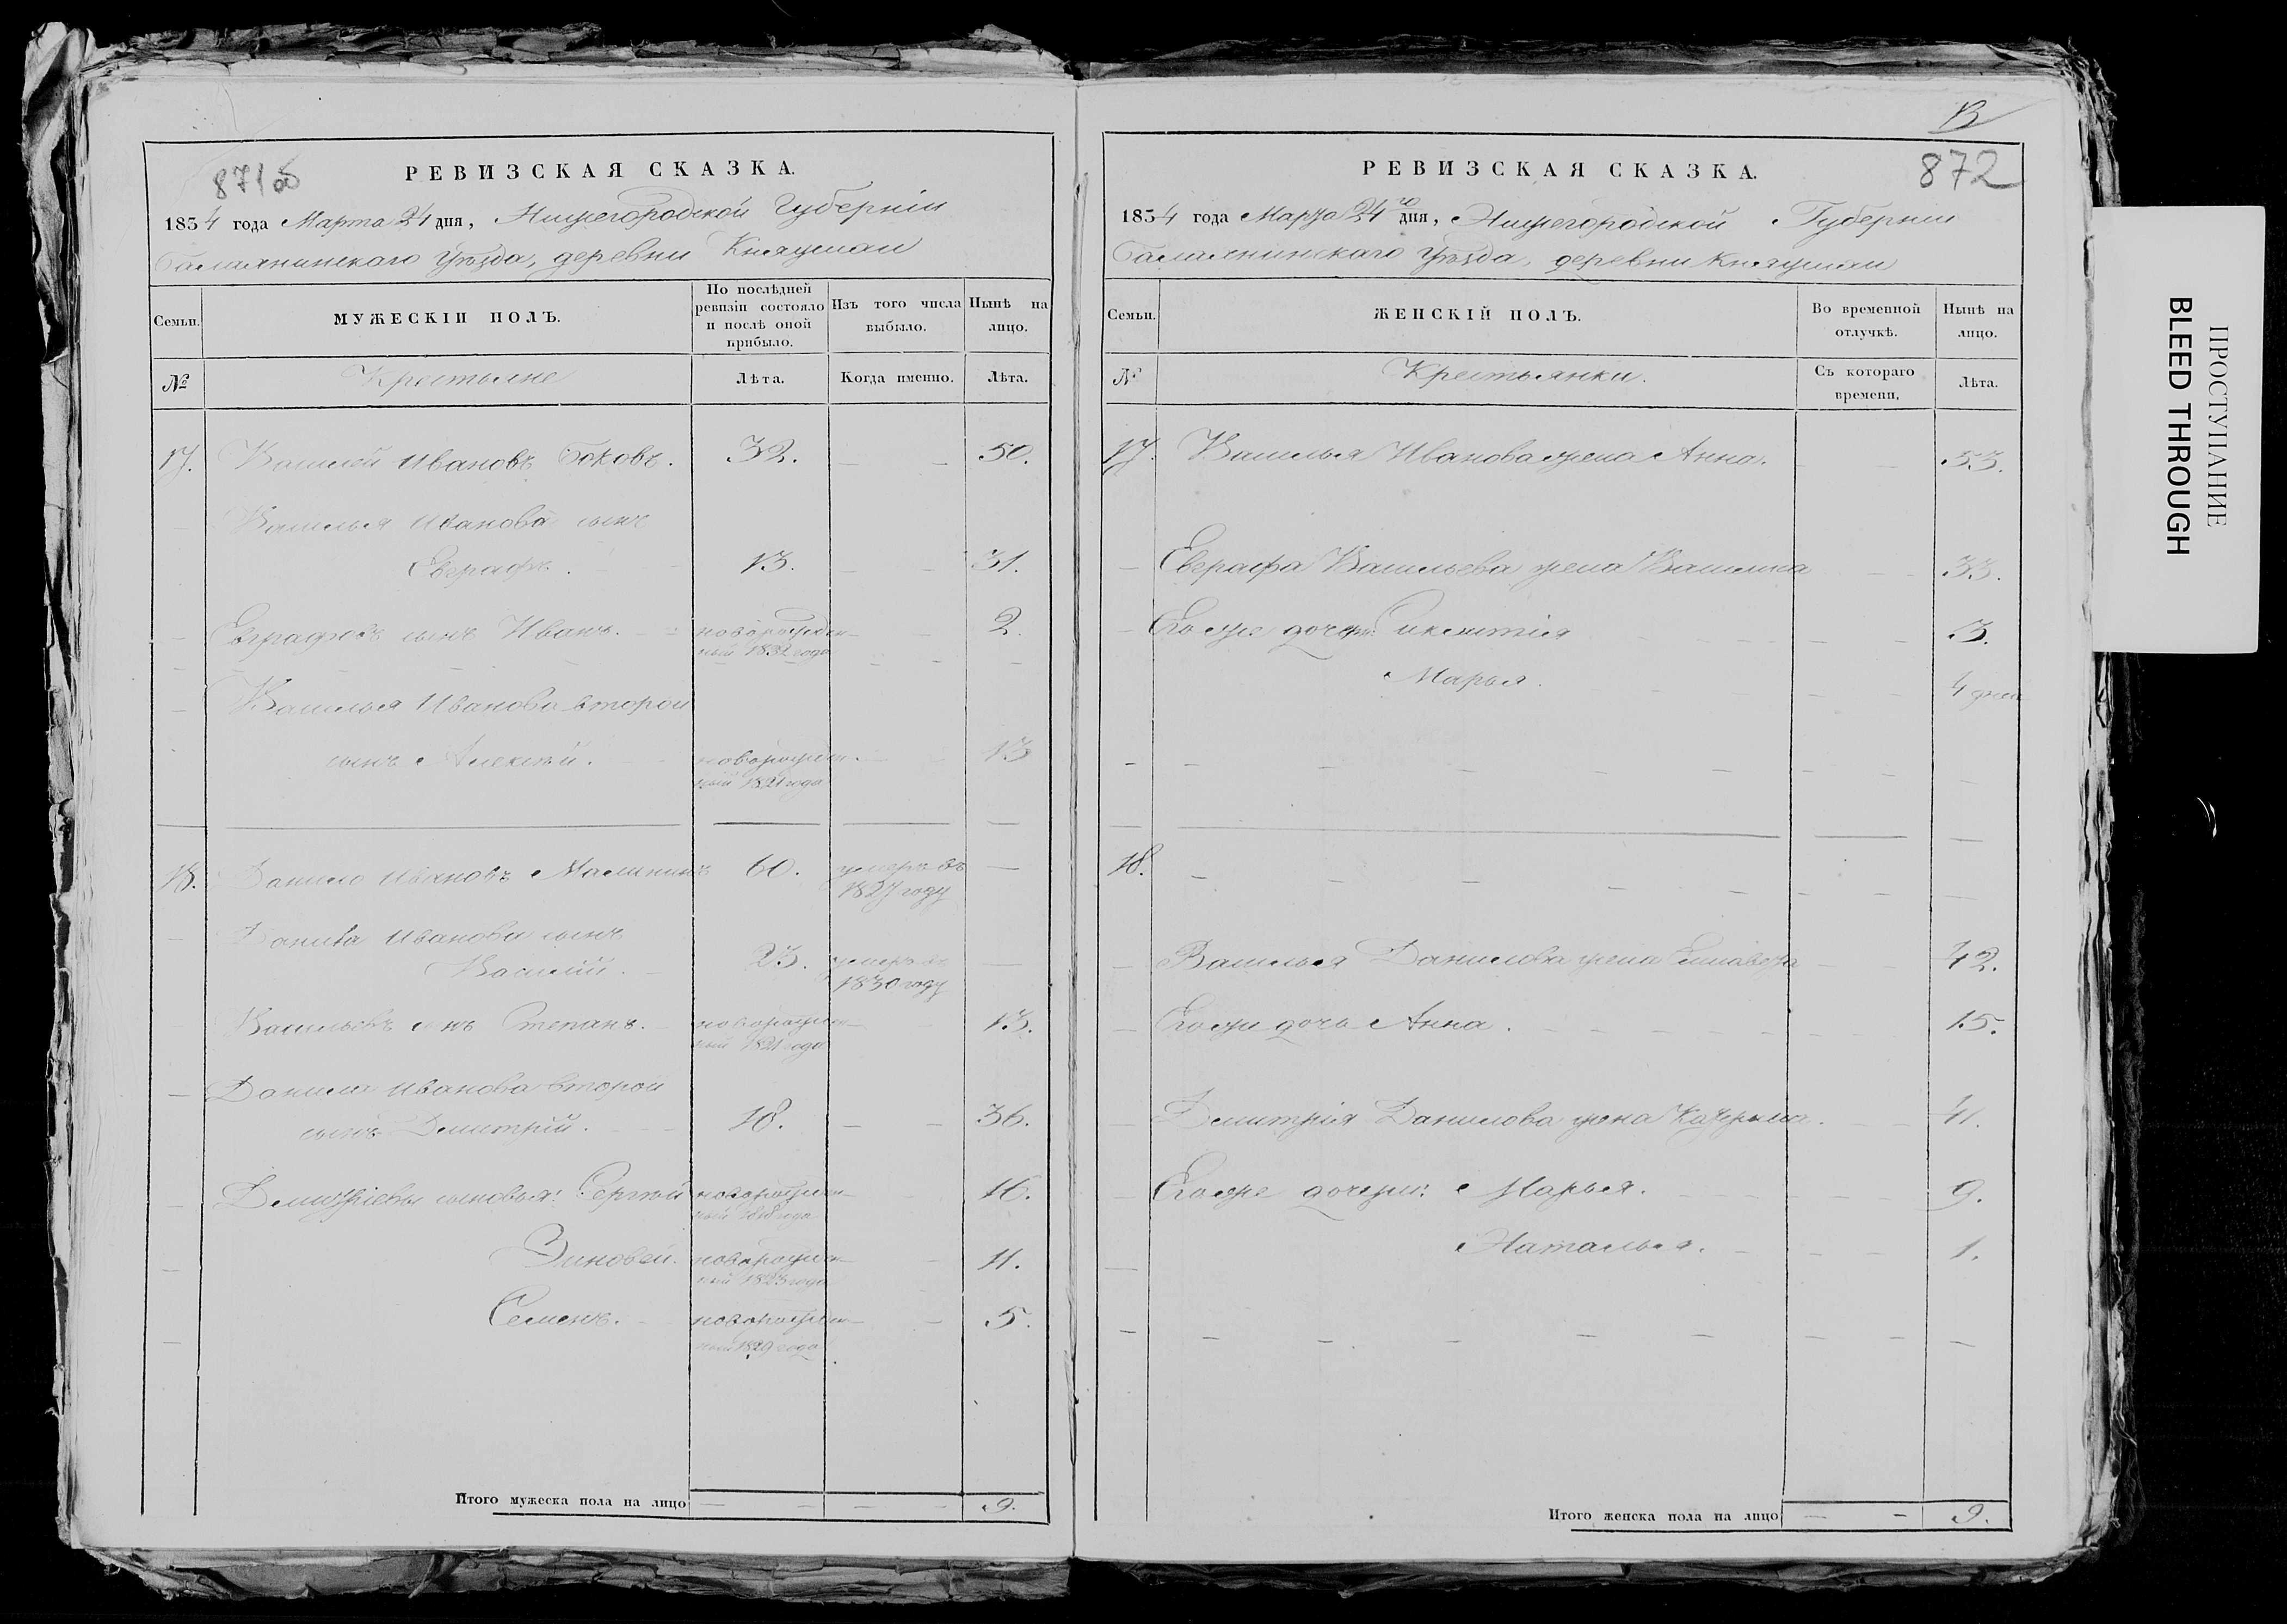 871об
РЕВИЗСКАЯ СКАЗКА.
1834 года Марта 24 дня, Нижегородской Губерніи
Балахнинскаго Уѣзда, деревни
Семьи.
МУЖЕСКІЙ ПОЛЪ.
По послѣдней ревизіи состояло и послѣ оной прибыло.
Изъ того числа выбыло.
Нынѣ на лицо.
№
Крестьяне
Лѣта.
Когда именно.
Лѣта.
17. Василей Ивановъ Боковъ. 32. — — 50.
— Василья Иванова сынъ
Евграфъ. 13. — — 31.
— Евграфовъ сынъ Иванъ. — новорожден— — 2.
ный 1832 года
— Василья Иванова второй
сынъ Алексѣй. — новорожден. — 13
ный 1821 года
18. Данило Ивановъ Малининъ 60. умеръ въ —
1827 году
— Данила Иванова сынъ
Василій. — 23. умеръ въ —
1830 году
Васильевъ сынъ Степанъ. — новорожден— — 13.
ный 1821 года
— Данила Иванова второй
сынъ Дмитрій. — 18. — — 36.
— Дмитріевы сыновья: Сергѣй новорожден— 16.
ный 1818 года
— Зиновей. новорожден— — 11.
ный 1823 года
— Семенъ. — новорожден— — 5.
ный 1829 года
Итого мужеска пола на лицо — — — — 9.
872
РЕВИЗСКАЯ СКАЗКА.
1834 года Марта 24го дня, Нижегородской Губерніи
Балахнинскаго Уѣзда, деревни
Семьи.
ЖЕНСКІЙ ПОЛЪ.
Во временной отлучкѣ.
Нынѣ на лицо.
№
Крестьянки.
Съ котораго времени,
Лѣта.
17. Василья Иванова жена Анна. — — 53.
— Евграфа Васильева жена Василиса — — 33.
— Его же дочери: — — 3.
Марья. — — 4 дней
18.
— Василья Данилова жена Елисавета — — 42.
— Его же дочь Анна. — — 15.
— Дмитрія Данилова жена Катерина. — — 41.
— Его же дочери: Марья. — — 9.
— Наталья. — — 1.
Итого женска пола на лицо — — 9.
ПРОСТУПАНИЕ
BLEED THROUGH